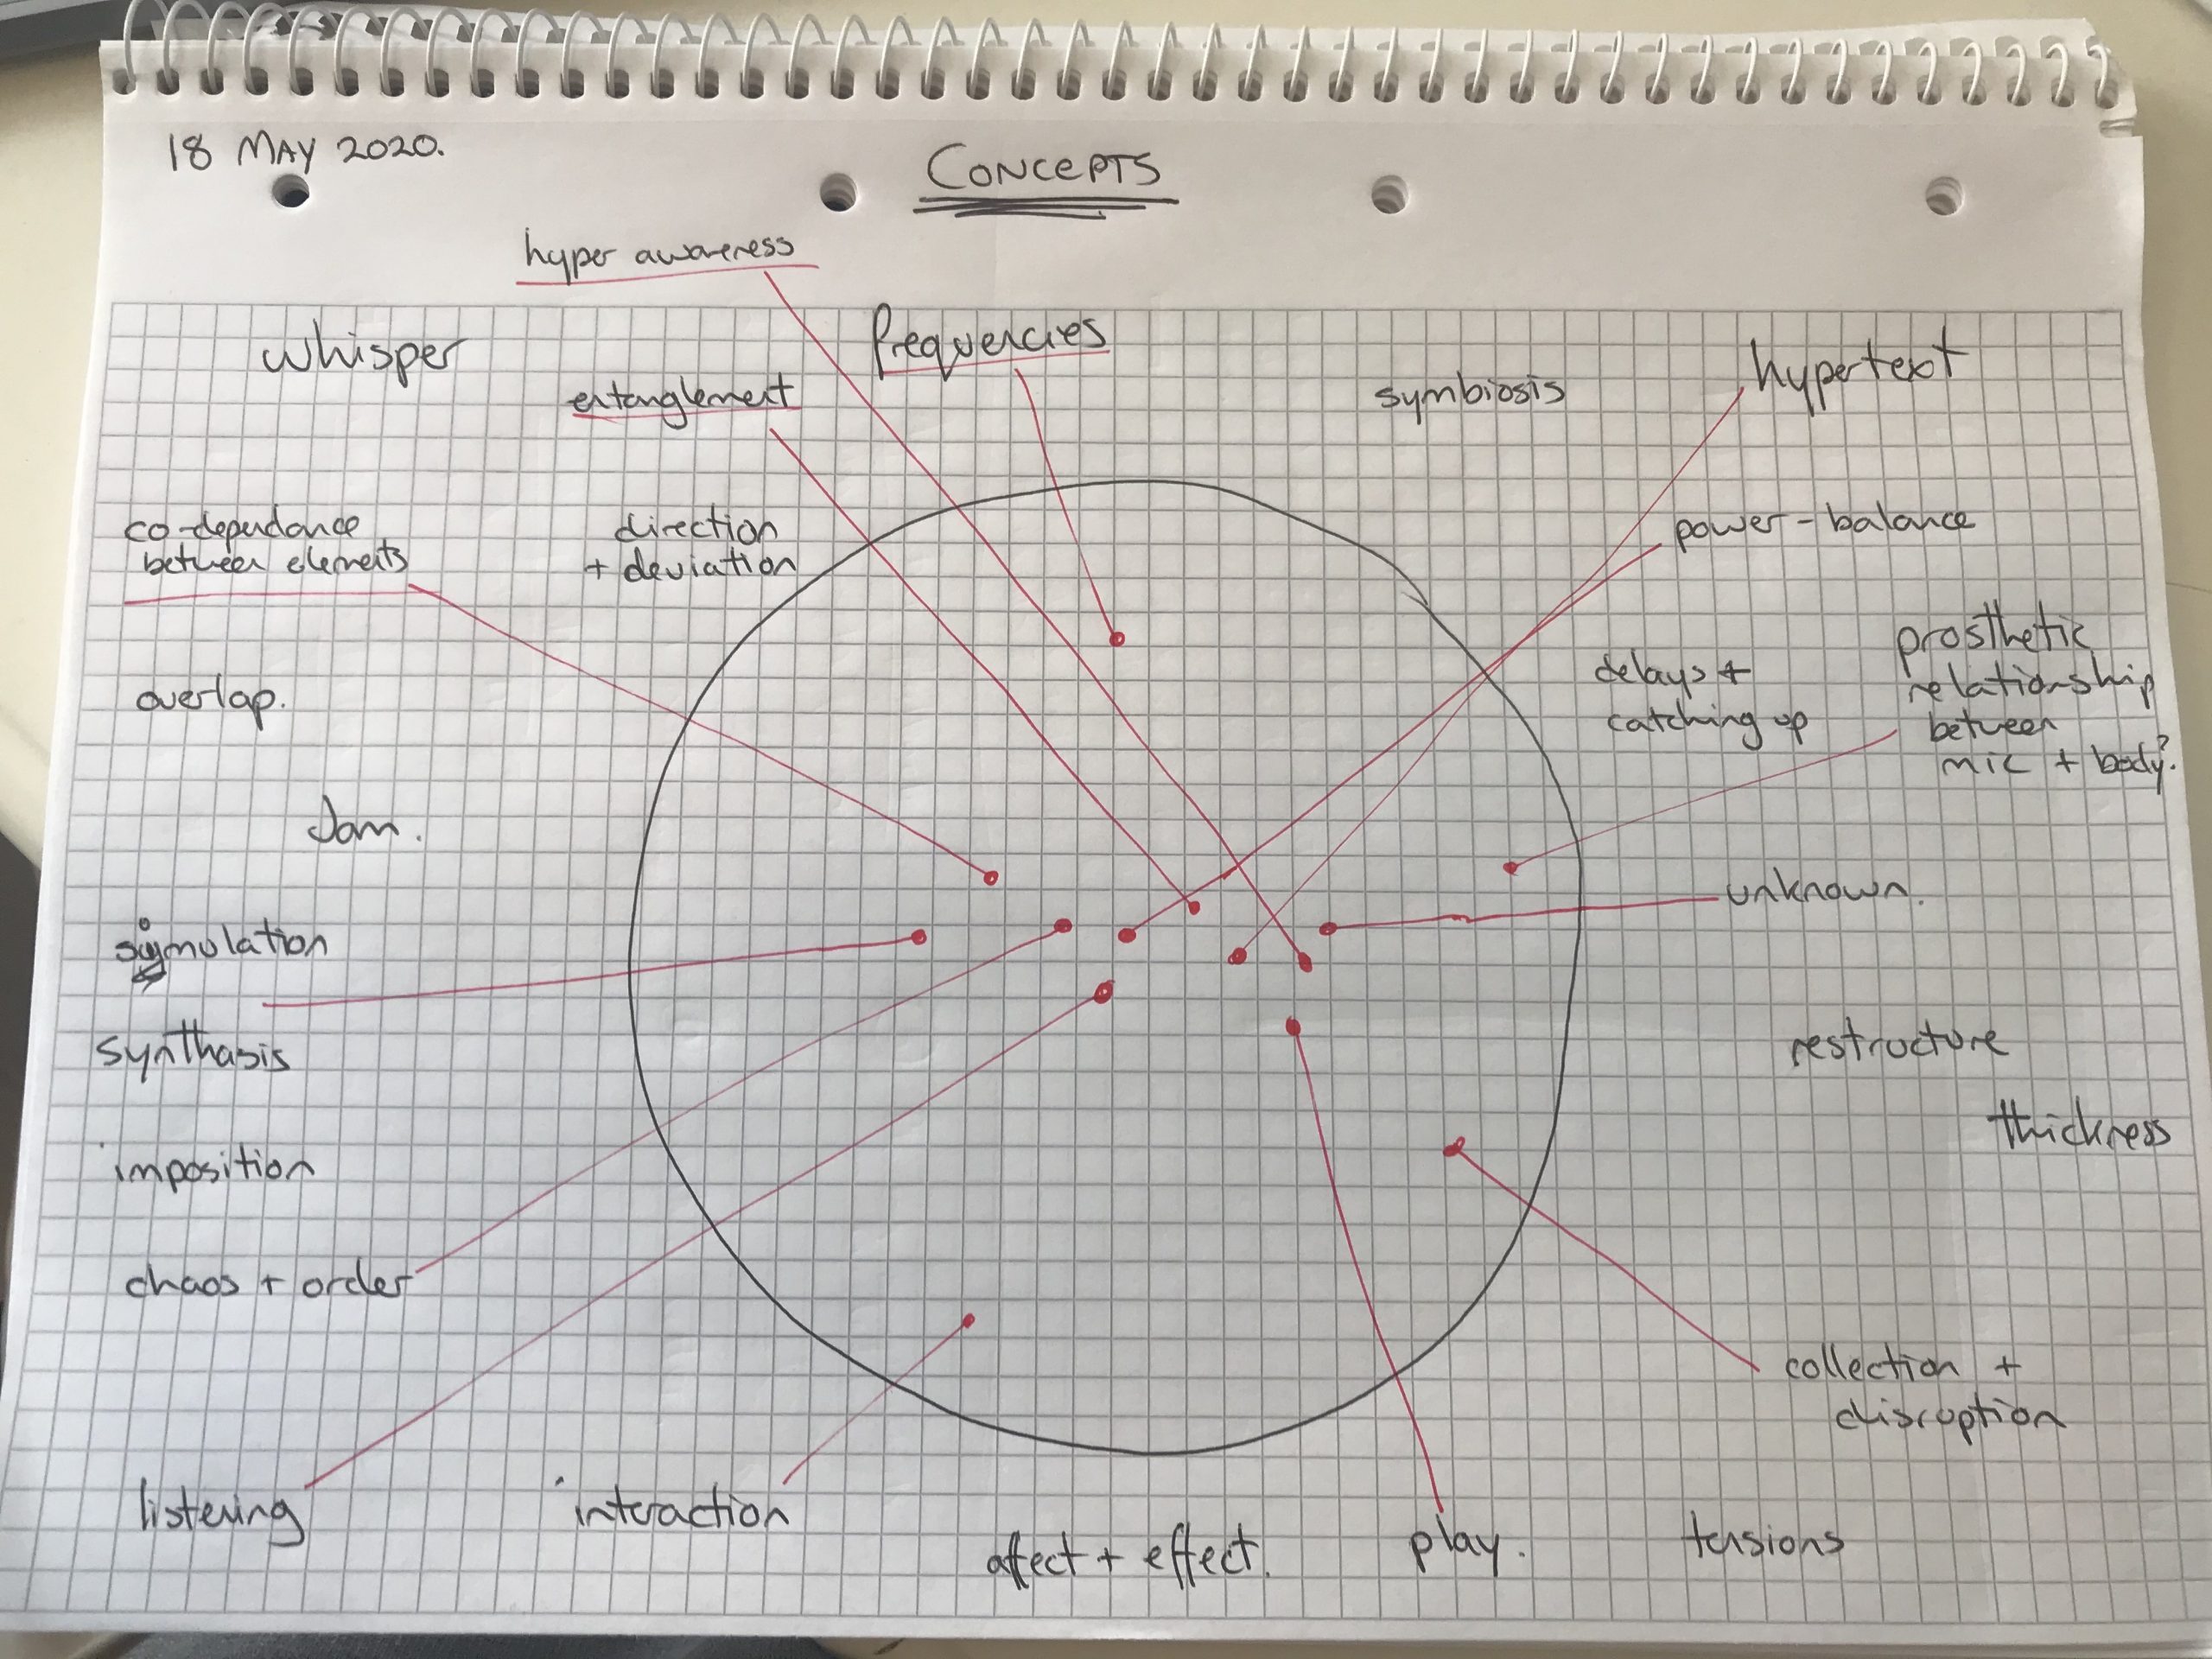 18 MAY 2020.
CONCEPTS
hyper awareness
whisper
frequencies
hypertext
entanglement
symbiosis
co-dependance
between elements
direction
+ deviation
power-balance
overlap.
delays +
catching up
prosthetic
relationship
between
mic + body?
Jam.
unknown.
simulation
synthasis
restructure
thickness
imposition
chaos + order
collection +
disruption
listening
interaction
affect + effect.
play.
tensions